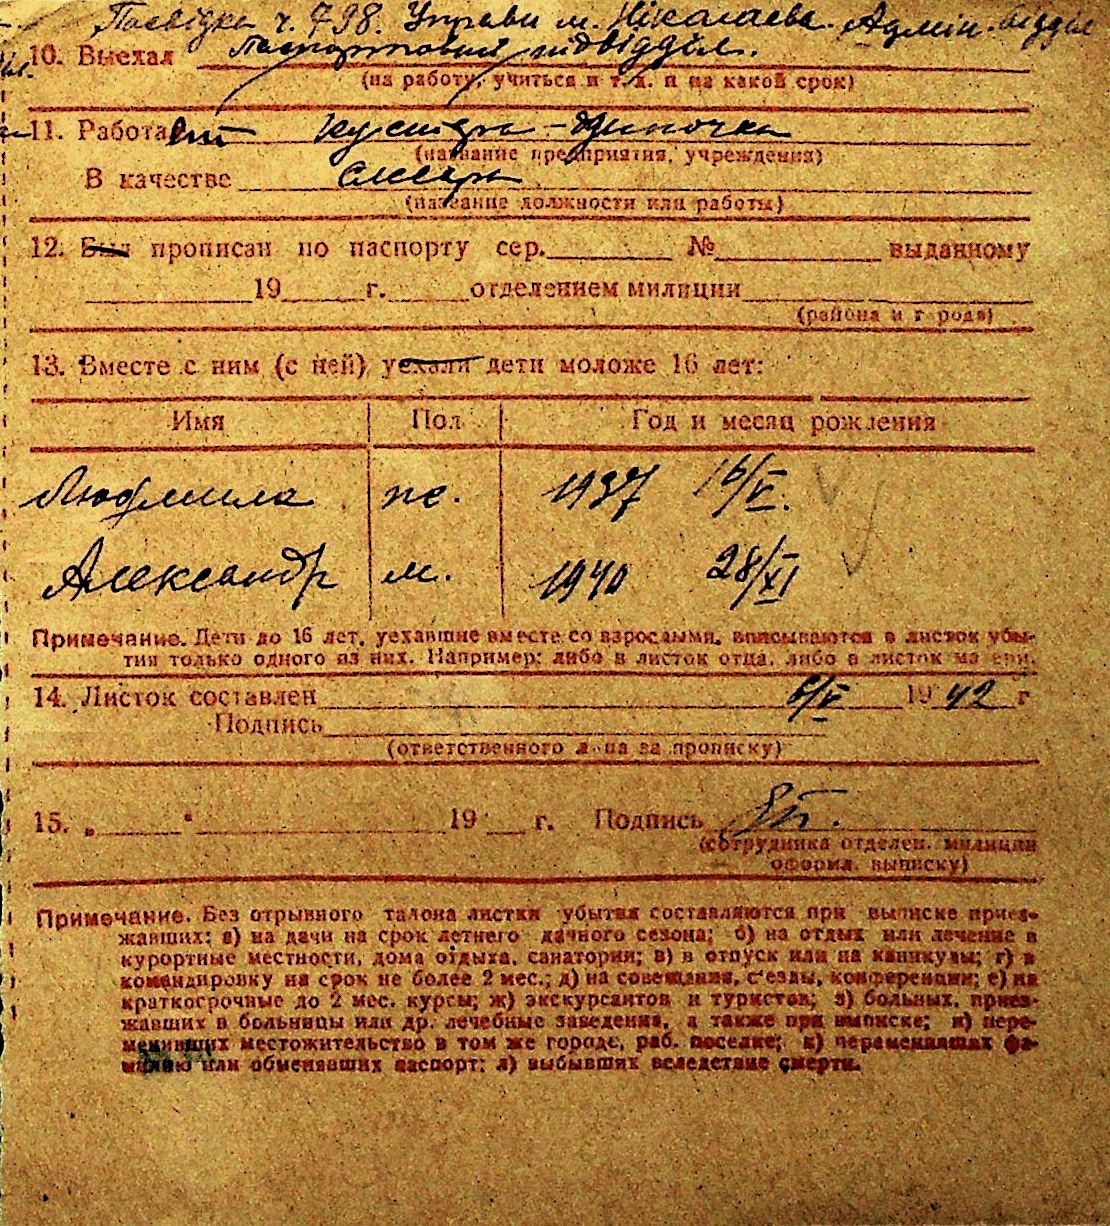 Посвідка ч. 798. Управи м. Ніколаєва. Адмін. відділ
10. Выехал Паспортовий підвідділ.
(на работу, учиться и т. д. и на какой срок)
11. Работает кустарь-одиночка
(название предприятия, учреждения)
В качестве слесарь
(название должности или работы)
12. Был прописан по паспорту сер. № выданному
19 г. отделением милиции
(района и города)
13. Вместе с ним (с ней) уехали дети моложе 16 лет:
Имя Пол Год и месяц рождения
Людмила ж. 1937 16/V.
Александр м. 1940 28/XI
Примечание. Дети до 16 лет, уехавшие вместе со взрослыми, вписываются в листок убы-
тия только одного из них. Например: либо в листок отца, либо в листок матери.
14. Листок составлен 6/V 1942 г
Подпись
(ответственного лица за прописку)
15. „ " 19 г. Подпись
(сотрудника отделен. милиции
оформл. выписку)
Примечание. Без отрывного талона листки убытия составляются при выписке приез-
жавших: а) на дачи на срок летнего дачного сезона; б) на отдых или лечение в
курортные местности, дома отдыха, санатории; в) в отпуск или на каникулы; г) в
командировку на срок не более 2 мес.; д) на совещания, с'езды, конференции; е) на
краткосрочные до 2 мес. курсы; ж) экскурсантов и туристов; з) больных, приез-
жавших в больницы или др. лечебные заведения, а также при выписке; и) пере-
менивших местожительство в том же городе, раб. поселке; к) переменивших фа-
милию или обменявших паспорт; л) выбывших вследствие смерти.